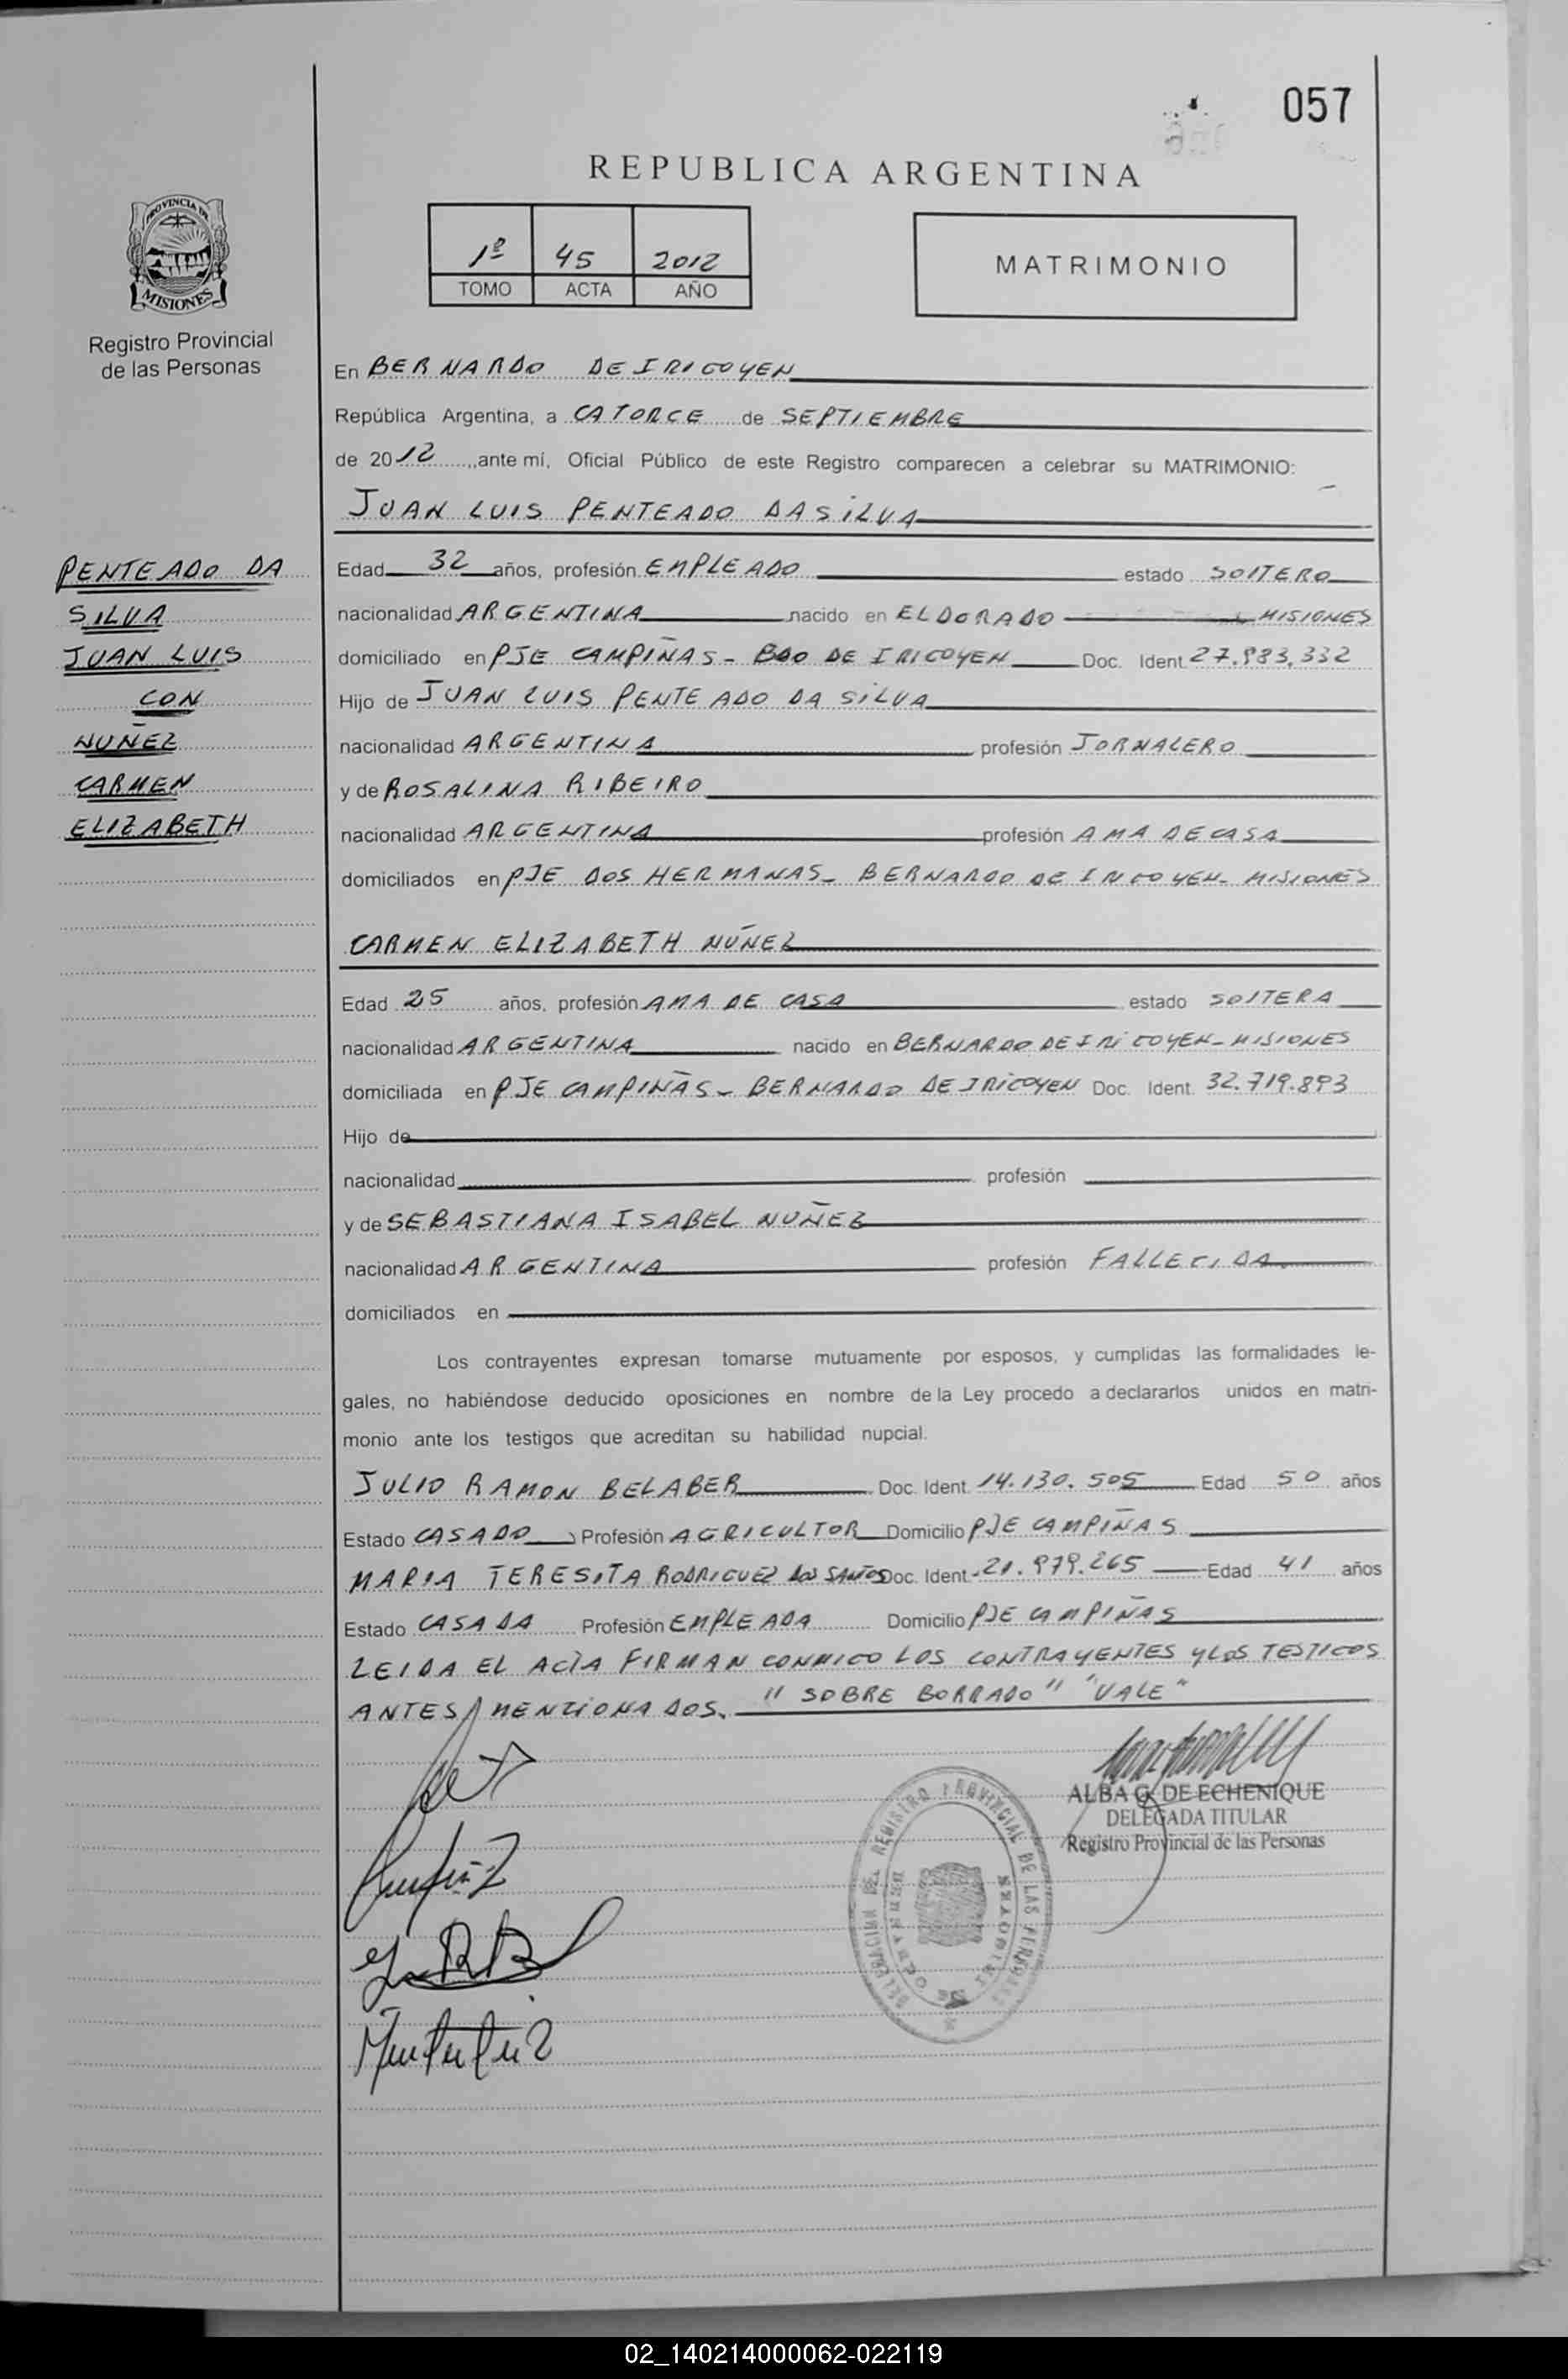 057
REPUBLICA ARGENTINA
1º 45 2012
TOMO ACTA AÑO
MATRIMONIO
PROVINCIA DE
MISIONES
Registro Provincial
de las Personas
En BERNARDO DE IRIGOYEN
República Argentina, a CATORCE de SEPTIEMBRE
de 2012, ante mí, Oficial Público de este Registro comparecen a celebrar su MATRIMONIO:
JUAN LUIS PENTEADO DA SILVA
PENTEADO DA
SILVA
JUAN LUIS
CON
NUÑEZ
CARMEN
ELIZABETH
Edad 32 años, profesión EMPLEADO estado SOLTERO
nacionalidad ARGENTINA nacido en ELDORADO MISIONES
domiciliado en PJE CAMPIÑAS - BDO DE IRIGOYEN Doc. Ident. 27.983.332
Hijo de JUAN LUIS PENTEADO DA SILVA
nacionalidad ARGENTINA profesión JORNALERO
y de ROSALINA RIBEIRO
nacionalidad ARGENTINA profesión AMA DE CASA
domiciliados en PJE DOS HERMANAS - BERNARDO DE IRIGOYEN - MISIONES
CARMEN ELIZABETH NUÑEZ
Edad 25 años, profesión AMA DE CASA estado SOLTERA
nacionalidad ARGENTINA nacido en BERNARDO DE IRIGOYEN - MISIONES
domiciliada en PJE CAMPIÑAS - BERNARDO DE IRIGOYEN Doc. Ident. 32.719.893
Hijo de
nacionalidad profesión
y de SEBASTIANA ISABEL NUÑEZ
nacionalidad ARGENTINA profesión FALLECIDA
domiciliados en
Los contrayentes expresan tomarse mutuamente por esposos, y cumplidas las formalidades le-
gales, no habiéndose deducido oposiciones en nombre de la Ley procedo a declararlos unidos en matri-
monio ante los testigos que acreditan su habilidad nupcial.
JULIO RAMON BELABER Doc. Ident. 14.130.505 Edad 50 años
Estado CASADO Profesión AGRICULTOR Domicilio PJE CAMPIÑAS
MARIA TERESITA RODRIGUEZ DOS SANTOS Doc. Ident. 21.979.265 Edad 41 años
Estado CASADA Profesión EMPLEADA Domicilio PJE CAMPIÑAS
LEIDA EL ACTA FIRMAN CONMIGO LOS CONTRAYENTES Y LOS TESTIGOS
ANTES MENZIONADOS. "SOBRE BORRADO" "VALE"
ALBA G. DE ECHENIQUE
DELEGADA TITULAR
Registro Provincial de las Personas
DELEGACION DEL REGISTRO PROVINCIAL DE LAS PERSONAS
BERNARDO DE IRIGOYEN
02_140214000062-022119